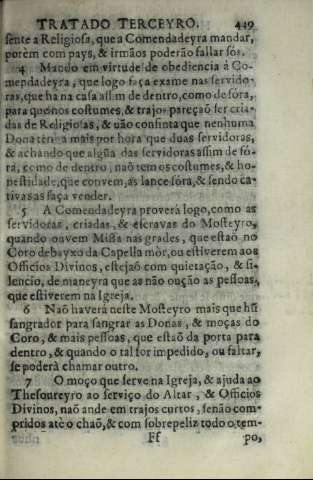 TRATADO TERCEYRO. 449
sente a Religiosa, que a Comendadeyra mandar,
porèm com pays, & irmãos poderão fallar sós.
4 Mando em virtude de obediencia à Co-
mendadeyra, que logo faça exame nas servido-
ras, que ha na casa assim de dentro, como de fóra,
para que nos costumes, & trajos pareçaõ ser cria-
das de Religiosas, & não consinta que nenhuma
Dona tenha mais por hora que duas servidoras,
& achando que algũa das servidoras assim de fó-
ra, como de dentro, naõ tem os costumes, & ho-
nestidade, que convem, as lance fóra, & sendo ca-
tivas as faça vender.
5 A Comendadeyra proverà logo, como as
servidoras, criadas, & escravas do Mosteyro,
quando ouvem Missa nas grades, que estaõ no
Coro debayxo da Capella mòr, ou estiverem aos
Officios Divinos, estejaõ com quietaçaõ, & si-
lencio, de maneyra que as não oução as pessoas,
que estiverem na Igreja.
6 Naõ haverà neste Mosteyro mais que hũ
sangrador para sangrar as Donas, & moças do
Coro, & mais pessoas, que estaõ da porta para
dentro, & quando o tal for impedido, ou faltar,
se poderà chamar outro.
7 O moço que serve na Igreja, & ajuda ao
Thesoureyro ao serviço do Altar, & Officios
Divinos, naõ ande em trajos curtos, senão com-
pridos atè o chaõ, & com sobrepeliz todo o tem-
Ff po,